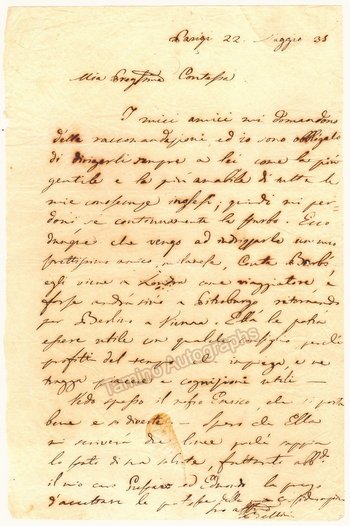 Parigi 22. Maggio 35
Mia Preg.ma Contessa
I miei amici mi domandono
delle raccomandazioni, ed io sono obbligato
di dirigerli sempre a lei come la più
gentile e la più amabile di tutte le
mie conoscenze inglesi; quindi mi per-
doni se continuamente la
dunque che vengo ad un mio
amico, Conte Barbò,
egli viene a Londra come viaggiatore, e
forse andrà sino a Pietroburgo ritornando
per Berlino a Vienna. Ella la potrà
essere utile con qualche consiglio, perché
profitti del tempo che impiega, e ne
tragga piacere e cognizioni utili —
Vedo spesso il nostro Enrico, che si porta
bene e si diverte — Spero che Ella
mi scriverà due linee perché sappia
lo stato di sua salute, frattanto
il mio caro Giuseppe ed Edoardo la prego
d'accettare le proteste della
suo
Bellini
Tamino Autographs